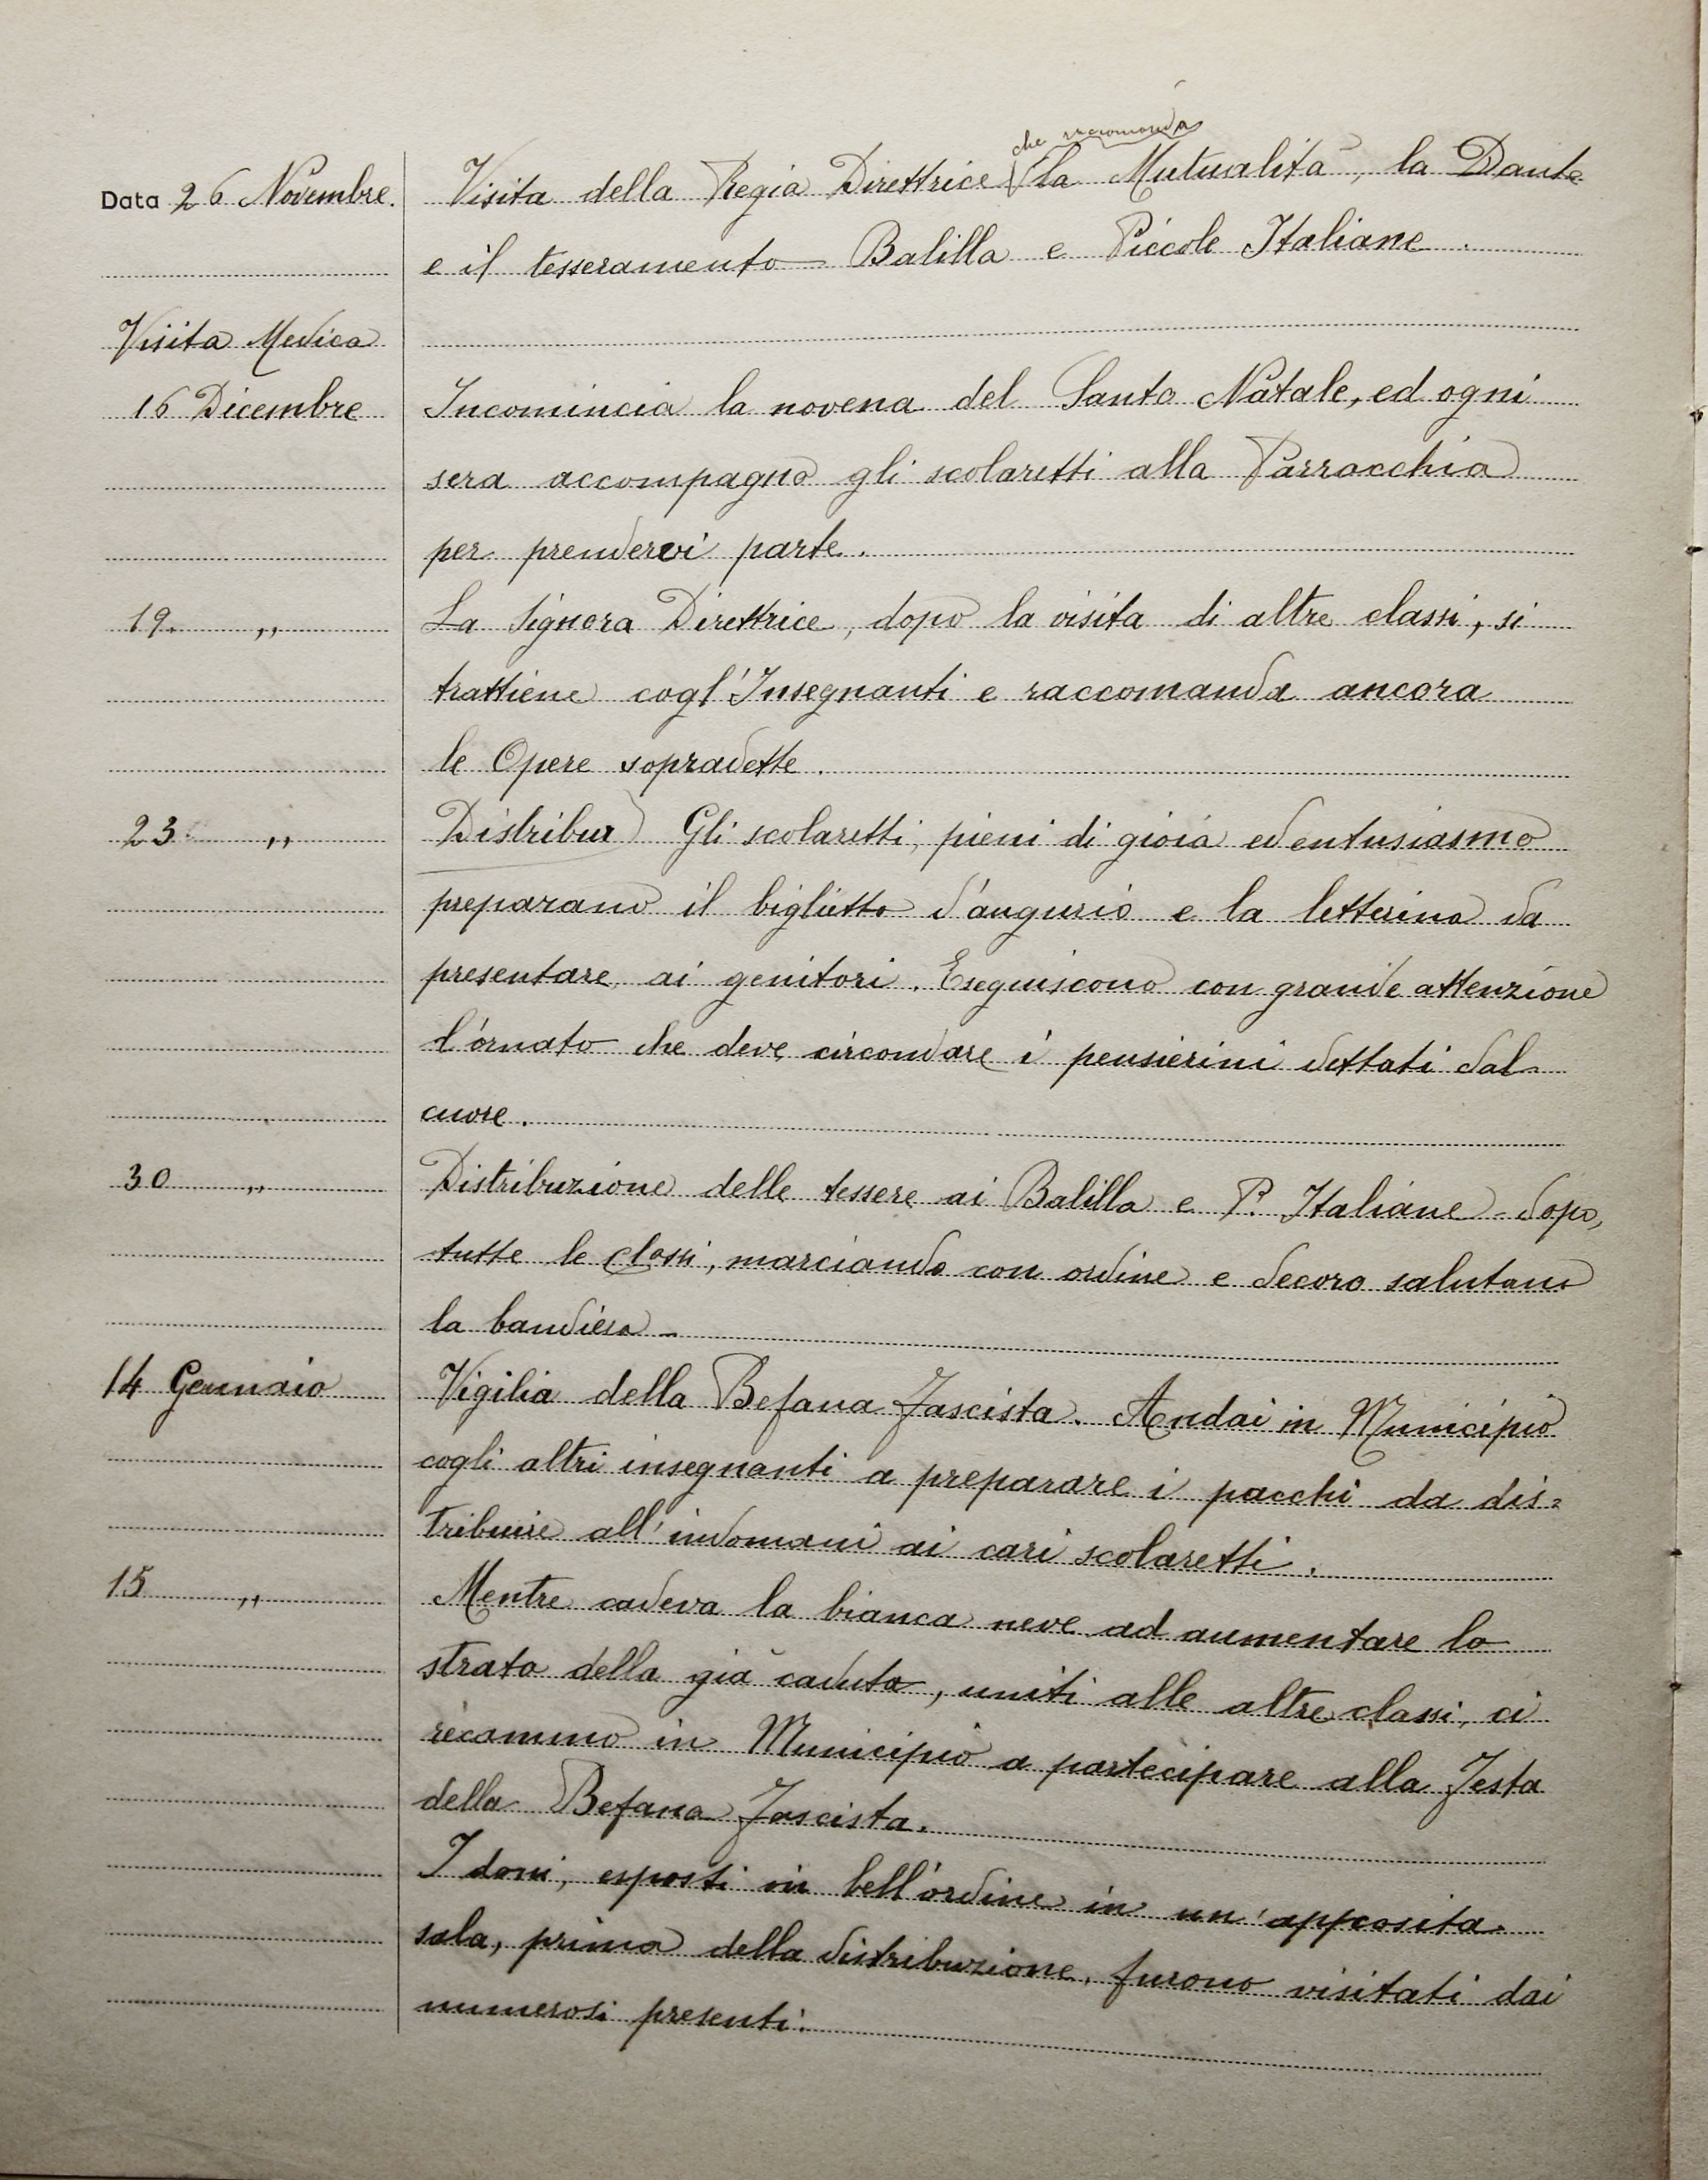 Data 26 Novembre. Visita della Regia Direttrice che raccomanda la Mutualità, la Dante
e il tesseramento Balilla e Piccole Italiane.
Visita Medica
16 Dicembre Incomincia la novena del Santo Natale, ed ogni
sera accompagno gli scolaretti alla Parrocchia
per prendervi parte.
19 „ La Signora Direttrice, dopo la visita di altre classi, si
trattiene cogl'Insegnanti e raccomanda ancora
le Opere sopradette.
23 „ Distribuz) Gli scolaretti, pieni di gioia ed entusiasmo
preparano il biglietto d'augurio e la letterina da
presentare ai genitori. Eseguiscono con grande attenzione
l'ornato che deve circondare i pensierini dettati dal
cuore.
30 „ Distribuzione delle tessere ai Balilla e P. Italiane - dopo,
tutte le classi, marciando con ordine e decoro salutano
la bandiera -
14 Gennaio Vigilia della Befana Fascista. Andai in Municipio
cogli altri insegnanti a preparare i pacchi da dis=
tribuire all'indomani ai cari scolaretti.
15 „ Mentre cadeva la bianca neve ad aumentare lo
strato della già caduta, uniti alle altre classi, ci
recammo in Municipio a partecipare alla Festa
della Befana Fascista.
I doni, esposti in bell'ordine in un'apposita
sala, prima della distribuzione, furono visitati dai
numerosi presenti.